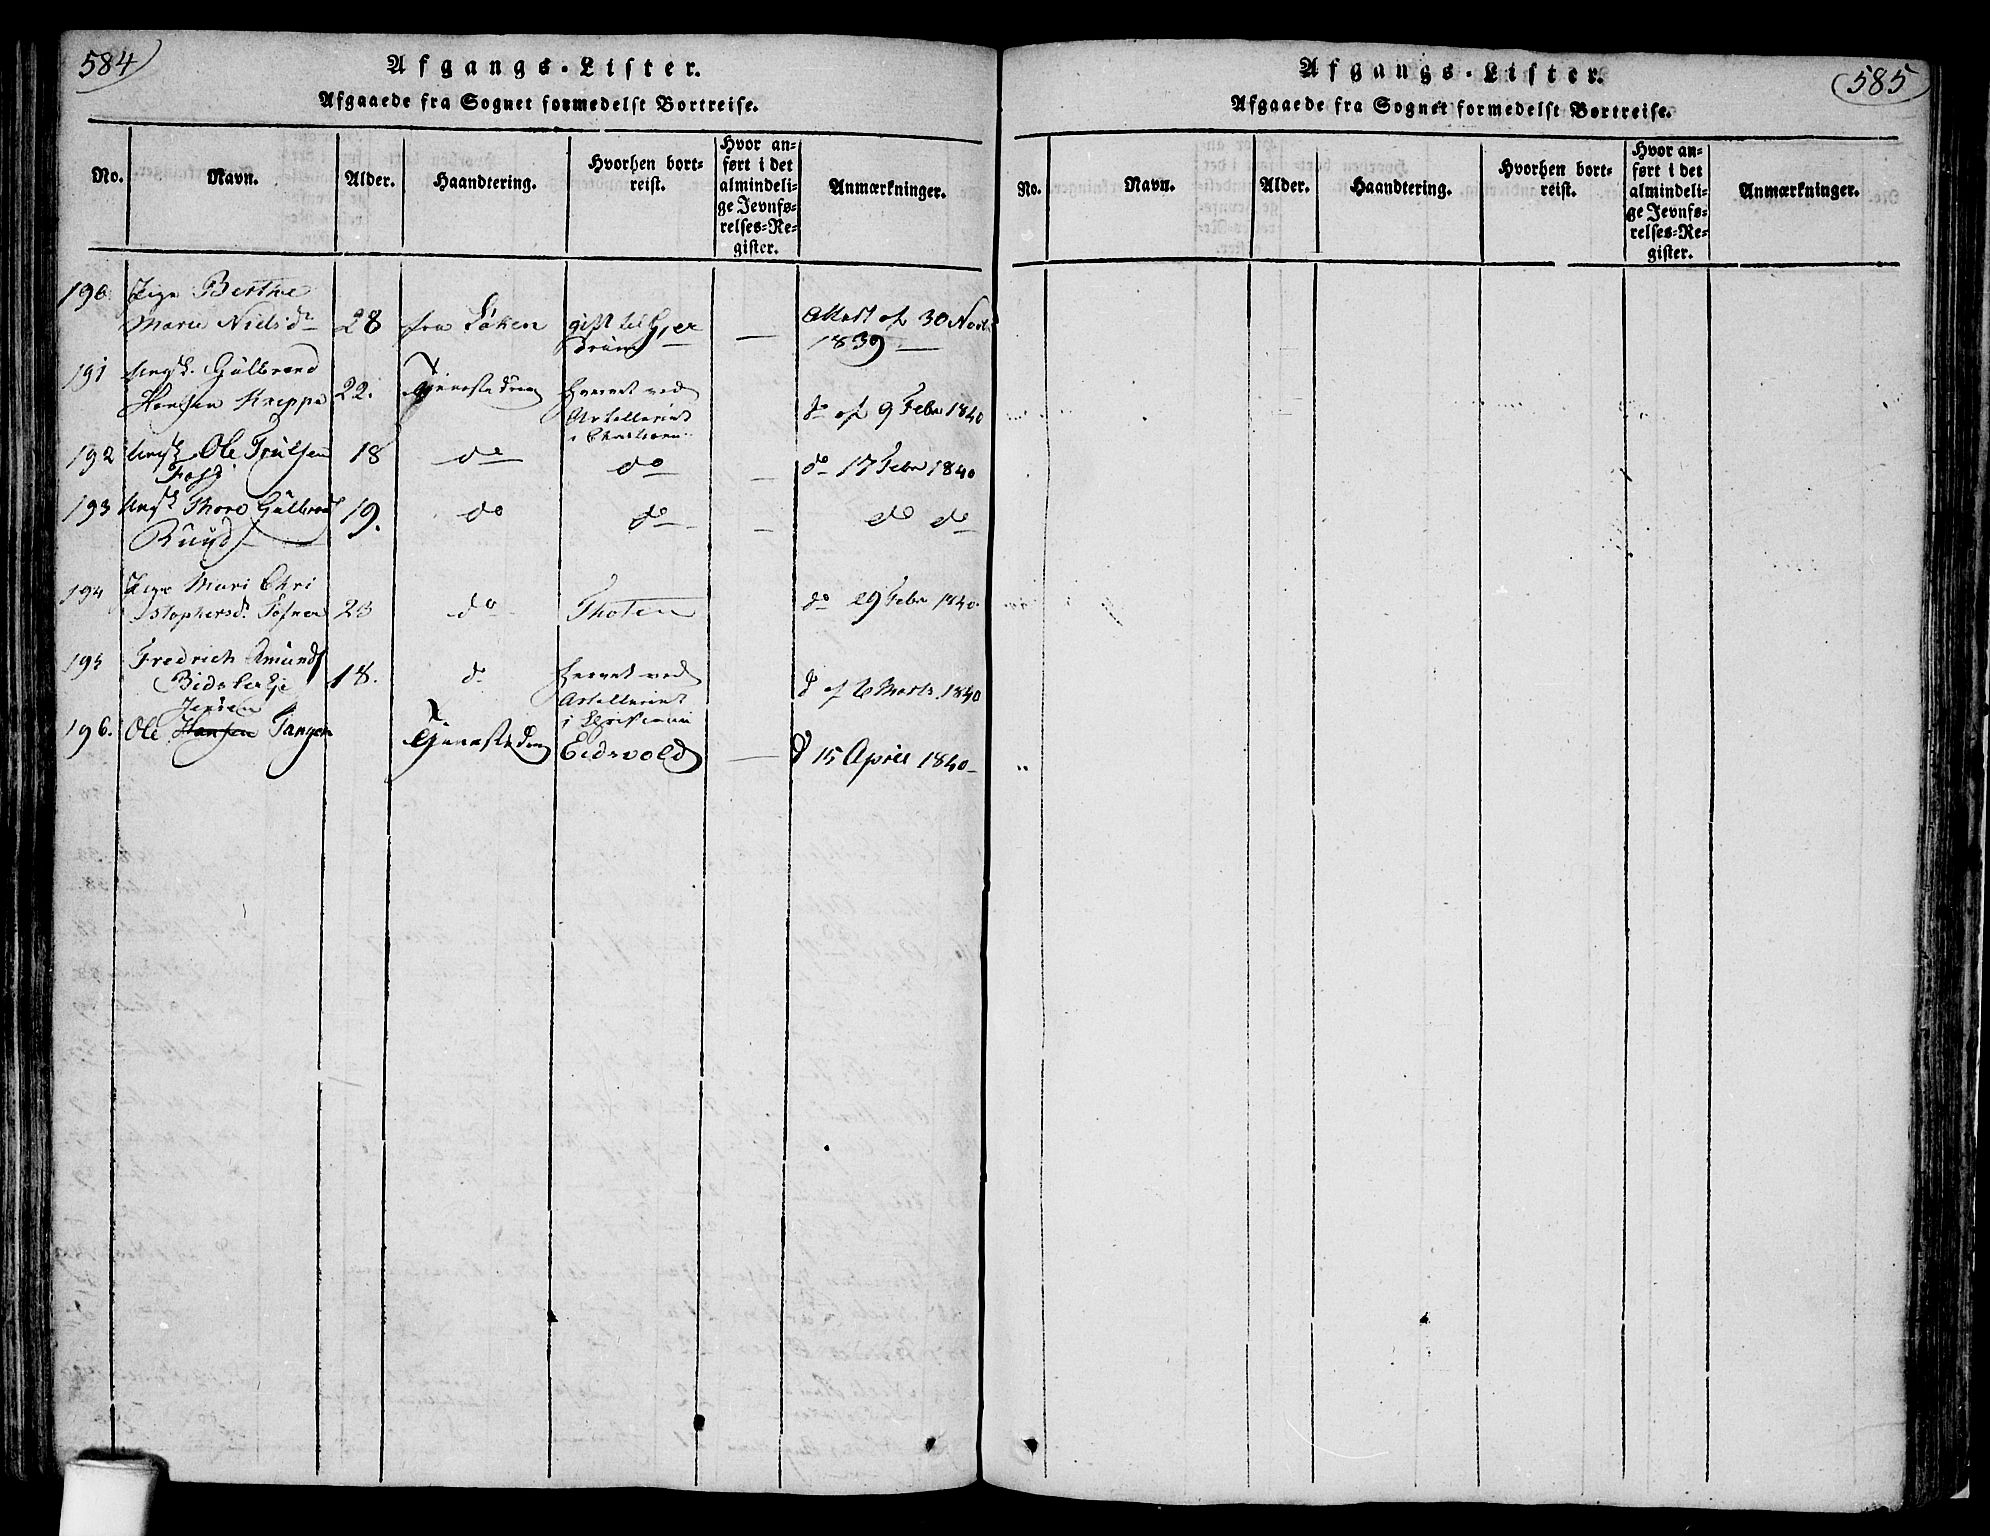 584
Afgangs-Lister.
Afgaaede fra Sognet formedelst Bortreise.
No. Navn. Alder. Haandtering. Hvorhen bort-
reist.
Hvor an-
ført i det
almindeli-
ge Jevnfø-
relses-Re-
gister.
Anmærkninger.
190 Pige Berthe
Marie Nielsd. 28 fra Løken gift til Gjer
drum — Attest af 30 Novb
1839 —
191 Ungk. Gulbrand
Hansen Kreppe 22. Tjenestedreng hvervet ved
Artilleriet
i Christiania
do af 9 Febr 1840
192 Ungk Ole Trulsen 18 do do — do 17 Febr 1840
193 Ungk Thore Gulbrands 19. do do — do do
Ruud
194 Pige Mari Chri
stophersd. Tofner 23 do Thoten do 29 Febr 1840.
195 Fredrich Amunds
Bidslereje 18. d hvervet ved
Artilleriet
i Christiania
d af 6 Marts 1840
Jensen
196. Ole Hansen Tangen Tjenestedreng Eidsvold — d 15 April 1840 —
585
Afgangs-Lister.
Afgaaede fra Sognet formedelst Bortreise.
No. Navn. Alder. Haandtering. Hvorhen bort-
reist.
Hvor an-
ført i det
almindeli-
ge Jevnfø-
relses-Re-
gister.
Anmærkninger.